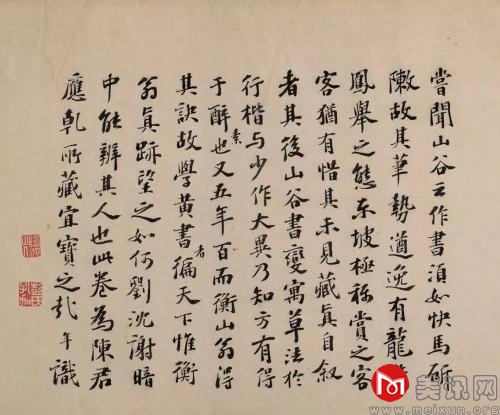 嘗聞山谷云作書須如快馬斫
敶故其筆勢遒逸有龍
鳳舉之態東坡極称賞之客
客猶有惜其未見藏真自叙
者其後山谷書變寓草法於
行楷与少作大異乃知方有得
于醉素也又五年百而衡山翁得
其訣故學黃書者徧天下惟衡
翁真跡望之如何劉沈謝暗
中能辨其人也此卷為陳君
應乹所藏宜寶之彭年識
美讯网
www.meixun.org